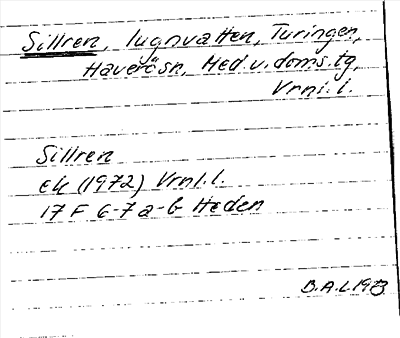 Sillren, lugnvatten, Turingen,
Haverö sn, Med.v. doms.tg,
Vrml. l.
Sillren
ek (1972) Vrml. l.
17 F 6-7 a-b Heden
B.A.L. 1973